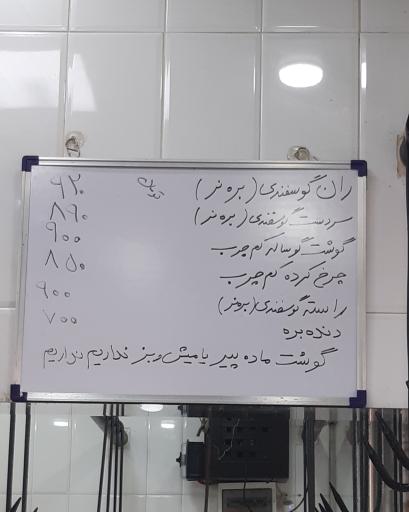 ران گوسفندی (بره نر) تومان ۹۲۰
سردست گوسفندی (بره نر) ۸۹۰
گوشت گوساله کم چرب ۹۰۰
چرخ کرده کم چرب ۸۵۰
راسته گوسفندی (بره نر) ۹۰۰
دنده بره ۷۰۰
گوشت ماده پیر یا میش و بز نداریم نداریم